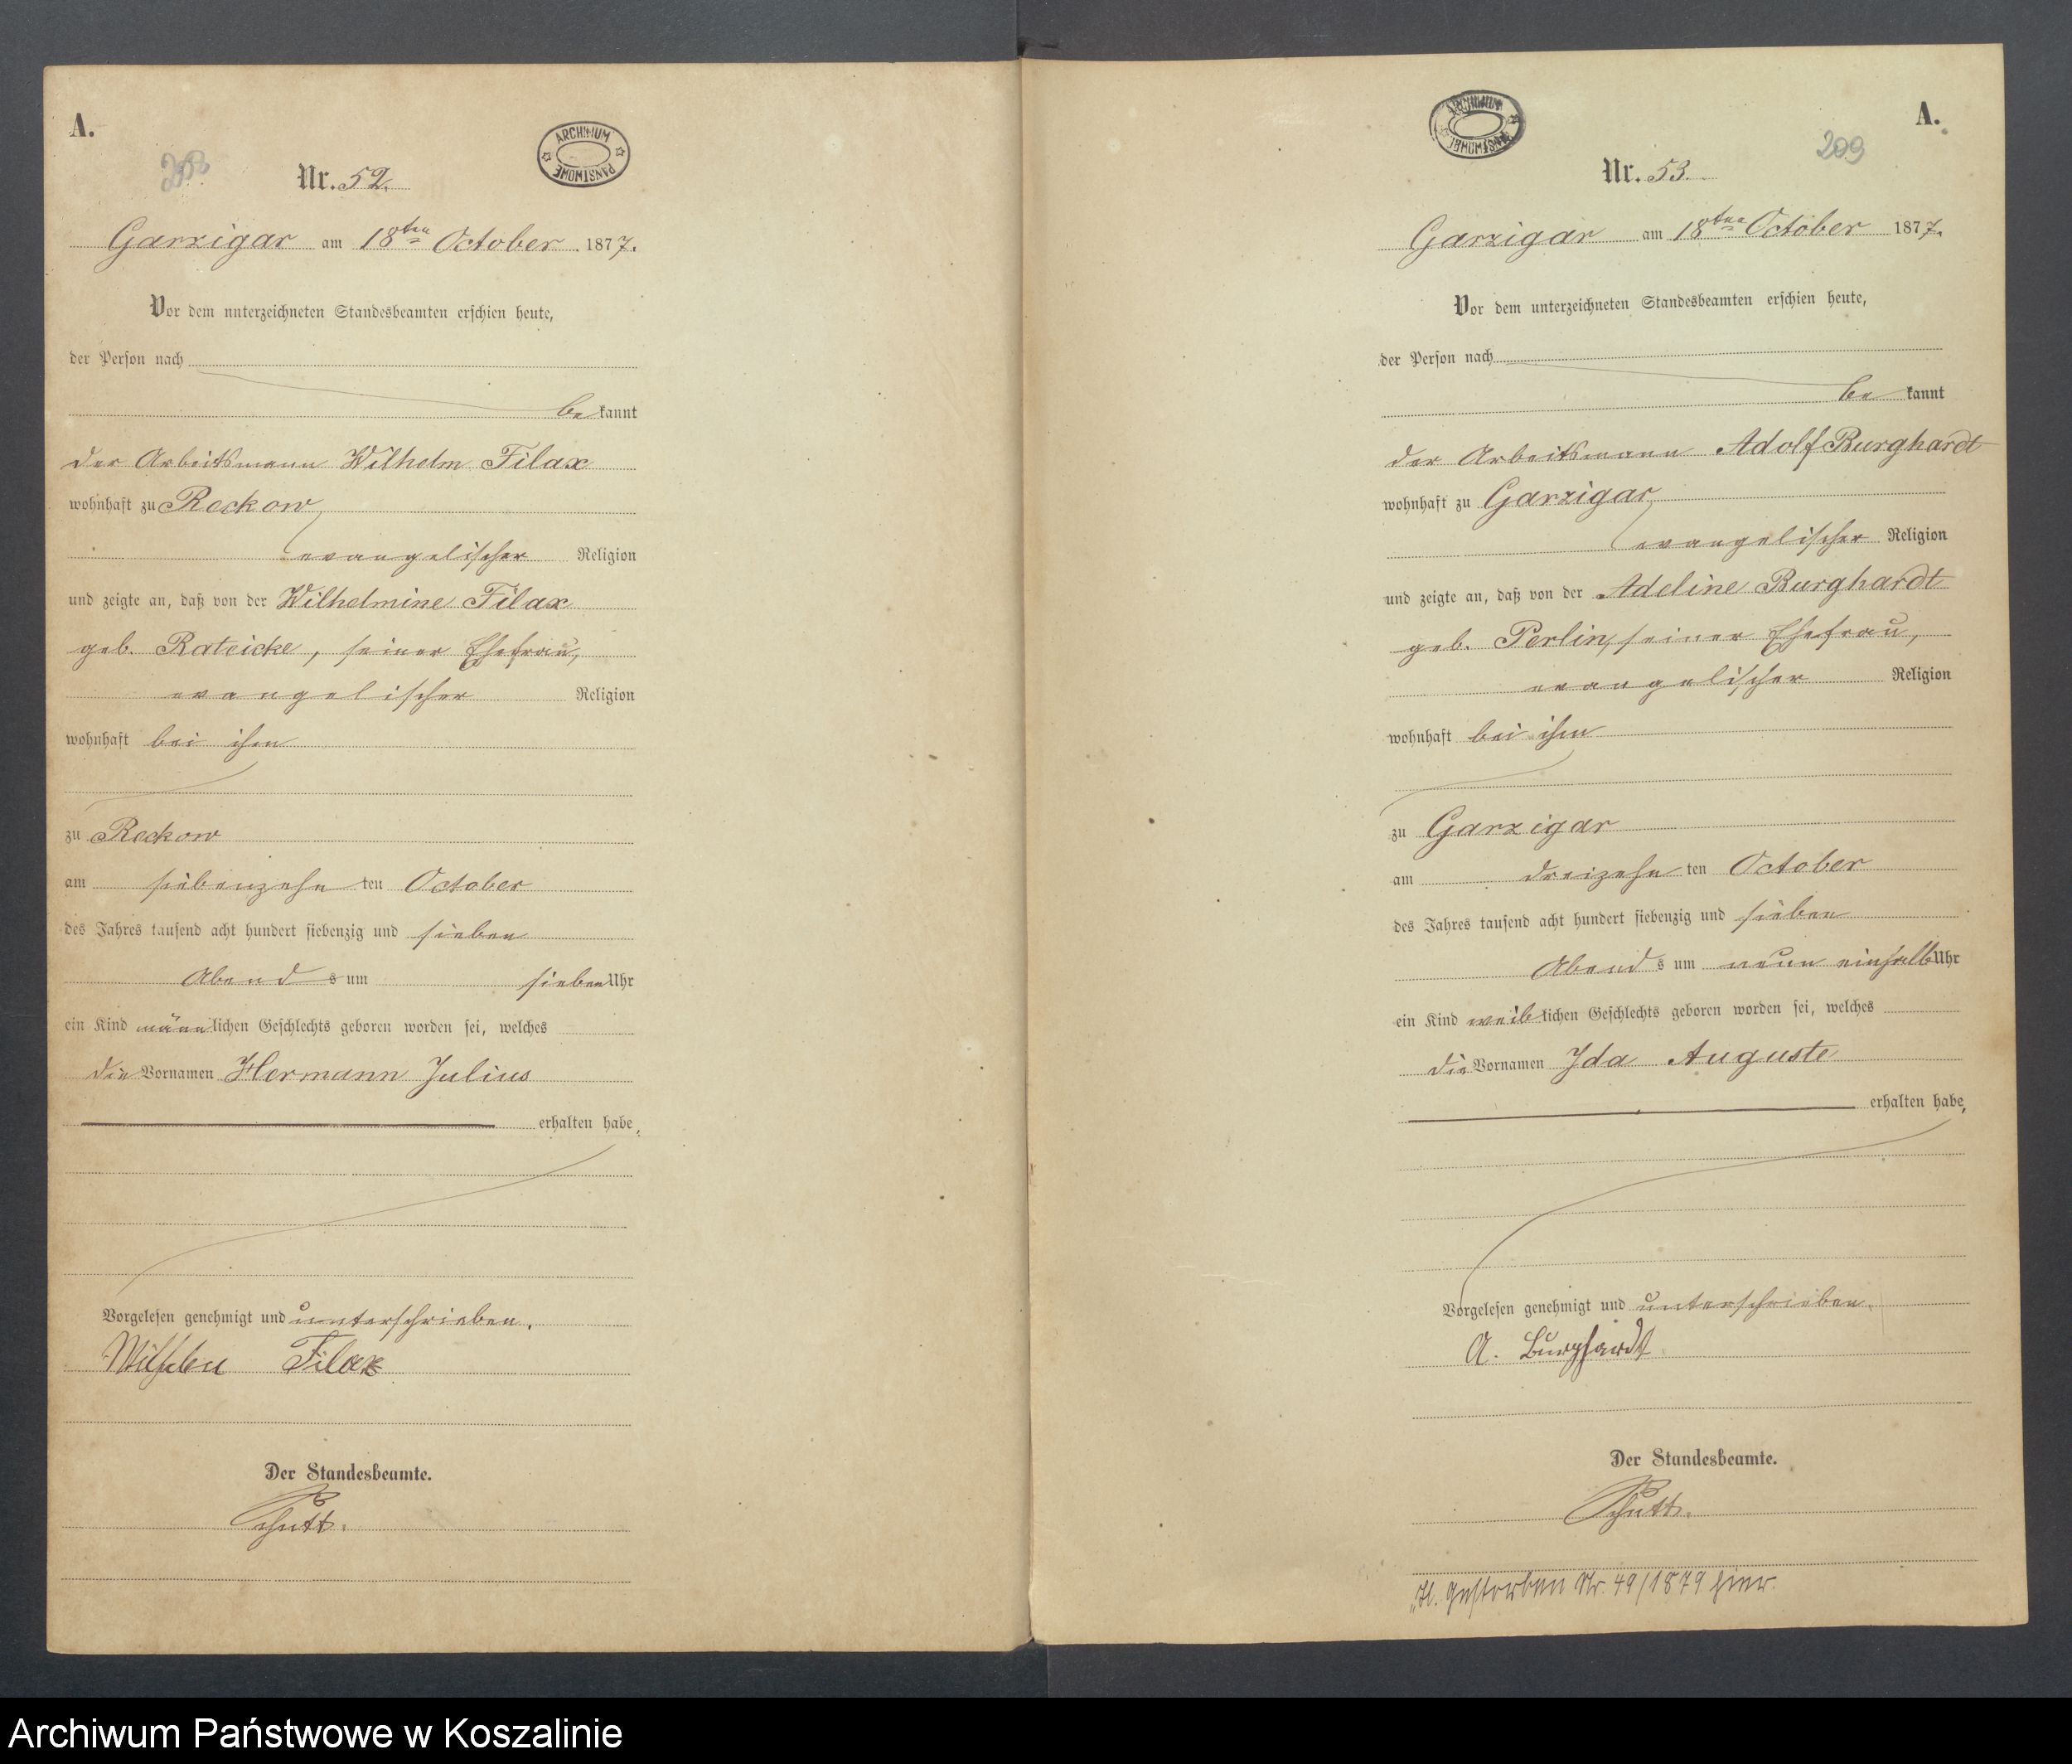 A.
208
Nr. 52.
ARCHIWUM PAŃSTWOWE
Garzigar am 18ten October 1877.
Vor dem unterzeichneten Standesbeamten erschien heute,
der Person nach
bekannt
der Arbeitsmann Wilhelm Filax
wohnhaft zu Reckow,
evangelischer Religion
und zeigte an, daß von der Wilhelmine Filax
geb. Rateicke, seiner Ehefrau,
evangelischer Religion
wohnhaft bei ihm
zu Reckow
am siebenzehnten October
des Jahres tausend acht hundert siebenzig und sieben
Abends um sieben Uhr
ein Kind männlichen Geschlechts geboren worden sei, welches
die Vornamen Hermann Julius
erhalten habe.
Vorgelesen genehmigt und unterschrieben.
Wilhelm Filax
Der Standesbeamte.
Schütt.
ARCHIWUM PAŃSTWOWE
A.
209
Nr. 53.
Garzigar am 18ten October 1877.
Vor dem unterzeichneten Standesbeamten erschien heute,
der Person nach
bekannt
der Arbeitsmann Adolf Burghardt
wohnhaft zu Garzigar,
evangelischer Religion
und zeigte an, daß von der Adeline Burghardt
geb. Perlin, seiner Ehefrau,
evangelischer Religion
wohnhaft bei ihm
zu Garzigar
am dreizehnten October
des Jahres tausend acht hundert siebenzig und sieben
Abends um neun einhalb Uhr
ein Kind weiblichen Geschlechts geboren worden sei, welches
die Vornamen Ida Auguste
erhalten habe,
Vorgelesen genehmigt und unterschrieben.
A. Burghardt
Der Standesbeamte.
Schütt.
gestorben Nr. 49/1879 hier.
Archiwum Państwowe w Koszalinie